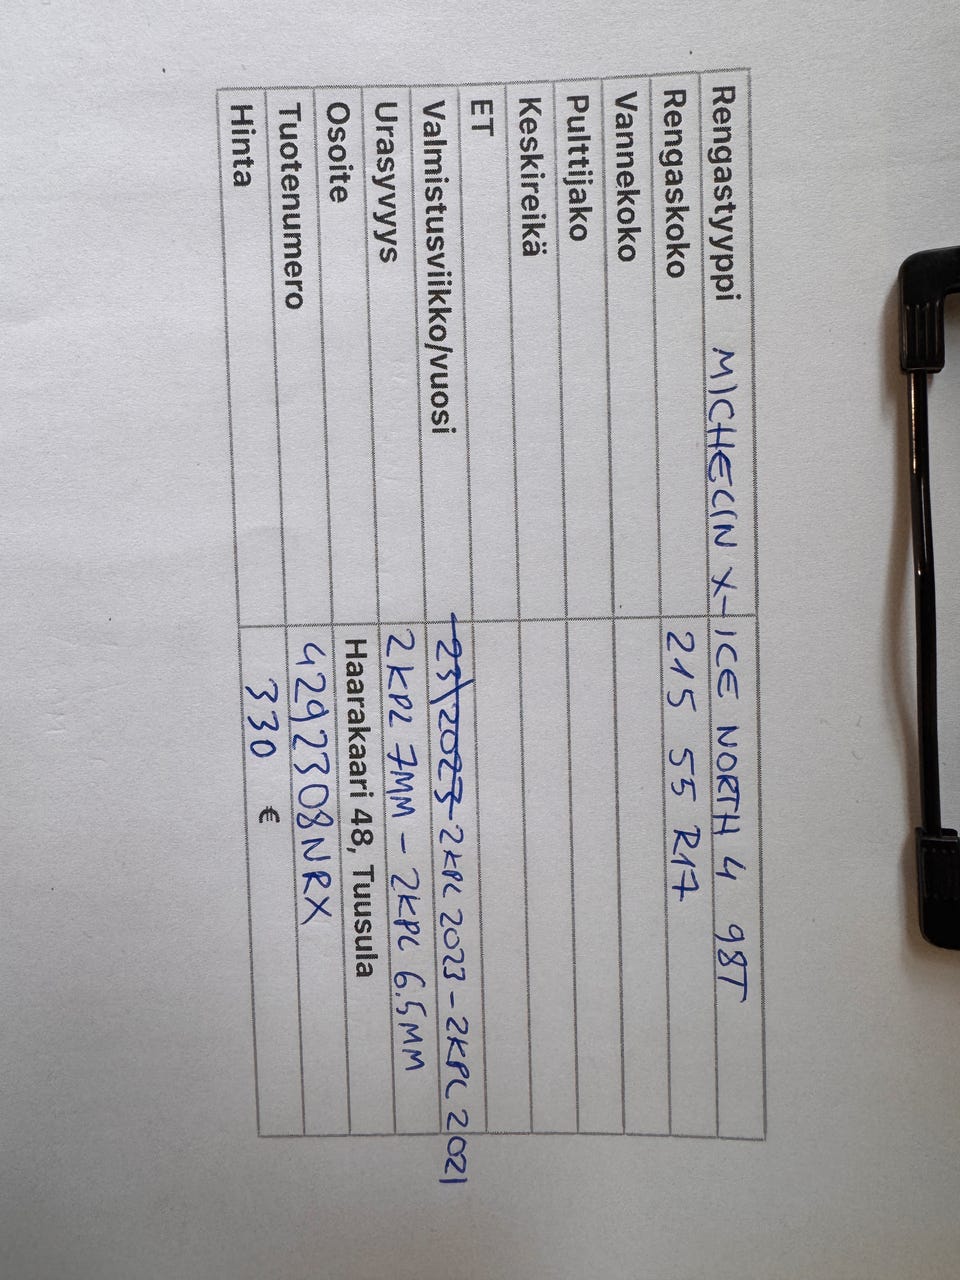 Rengastyyppi MICHELIN X-ICE NORTH 4 98T
Rengaskoko 215 55 R17
Vannekoko
Pulttijako
Keskireikä
ET
Valmistusviikko/vuosi 23\2023 2KPL 2023 - 2KPL 2021
Urasyvyys 2KPL 7MM - 2KPL 6.5MM
Osoite Haarakaari 48, Tuusula
Tuotenumero 4292308NRX
Hinta 330 €